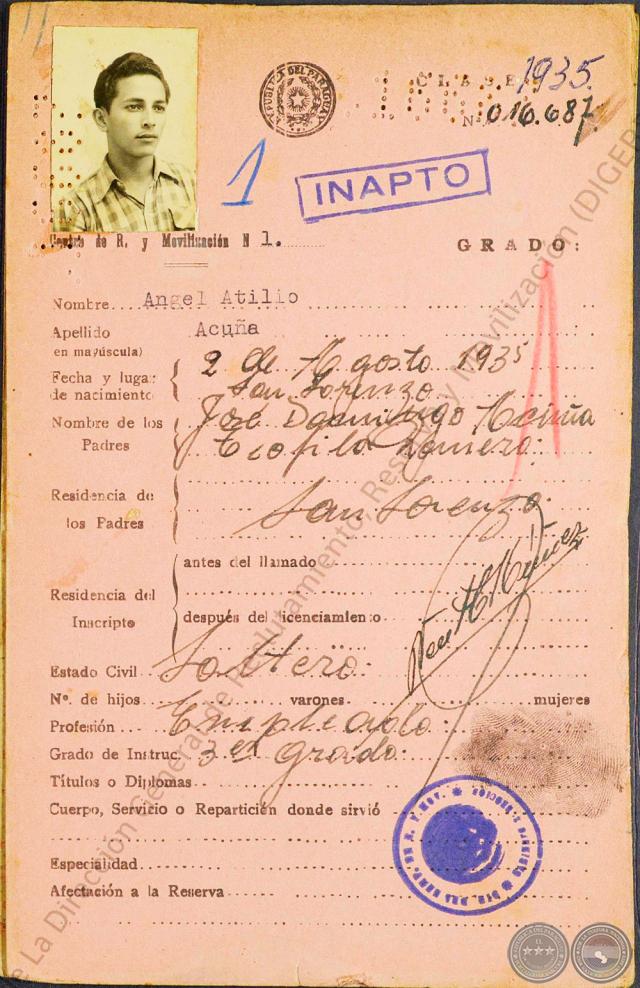 REPUBLICA DEL PARAGUAY
CLASE 1935
N 016.687
1
INAPTO
Centro de R. y Movilización N 1.
GRADO:
Nombre Angel Atilio
Apellido Acuña
en mayúscula)
Fecha y lugar 2 de Agosto 1935
de nacimiento San Lorenzo
Nombre de los José Domingo Acuña
Padres Teofila
Residencia de
los Padres San Lorenzo
antes del llamado
Residencia del
Inscripto
después del licenciamiento
Estado Civil Soltero
Nº. de hijos varones mujeres
Profesión Empleado
Grado de Instruc. 3er grado
Títulos o Diplomas
Cuerpo, Servicio o Repartición donde sirvió
Especialidad
Afectación a la Reserva
de La Dirección General de Reclutamiento, Reserva y Movilización (DIGER